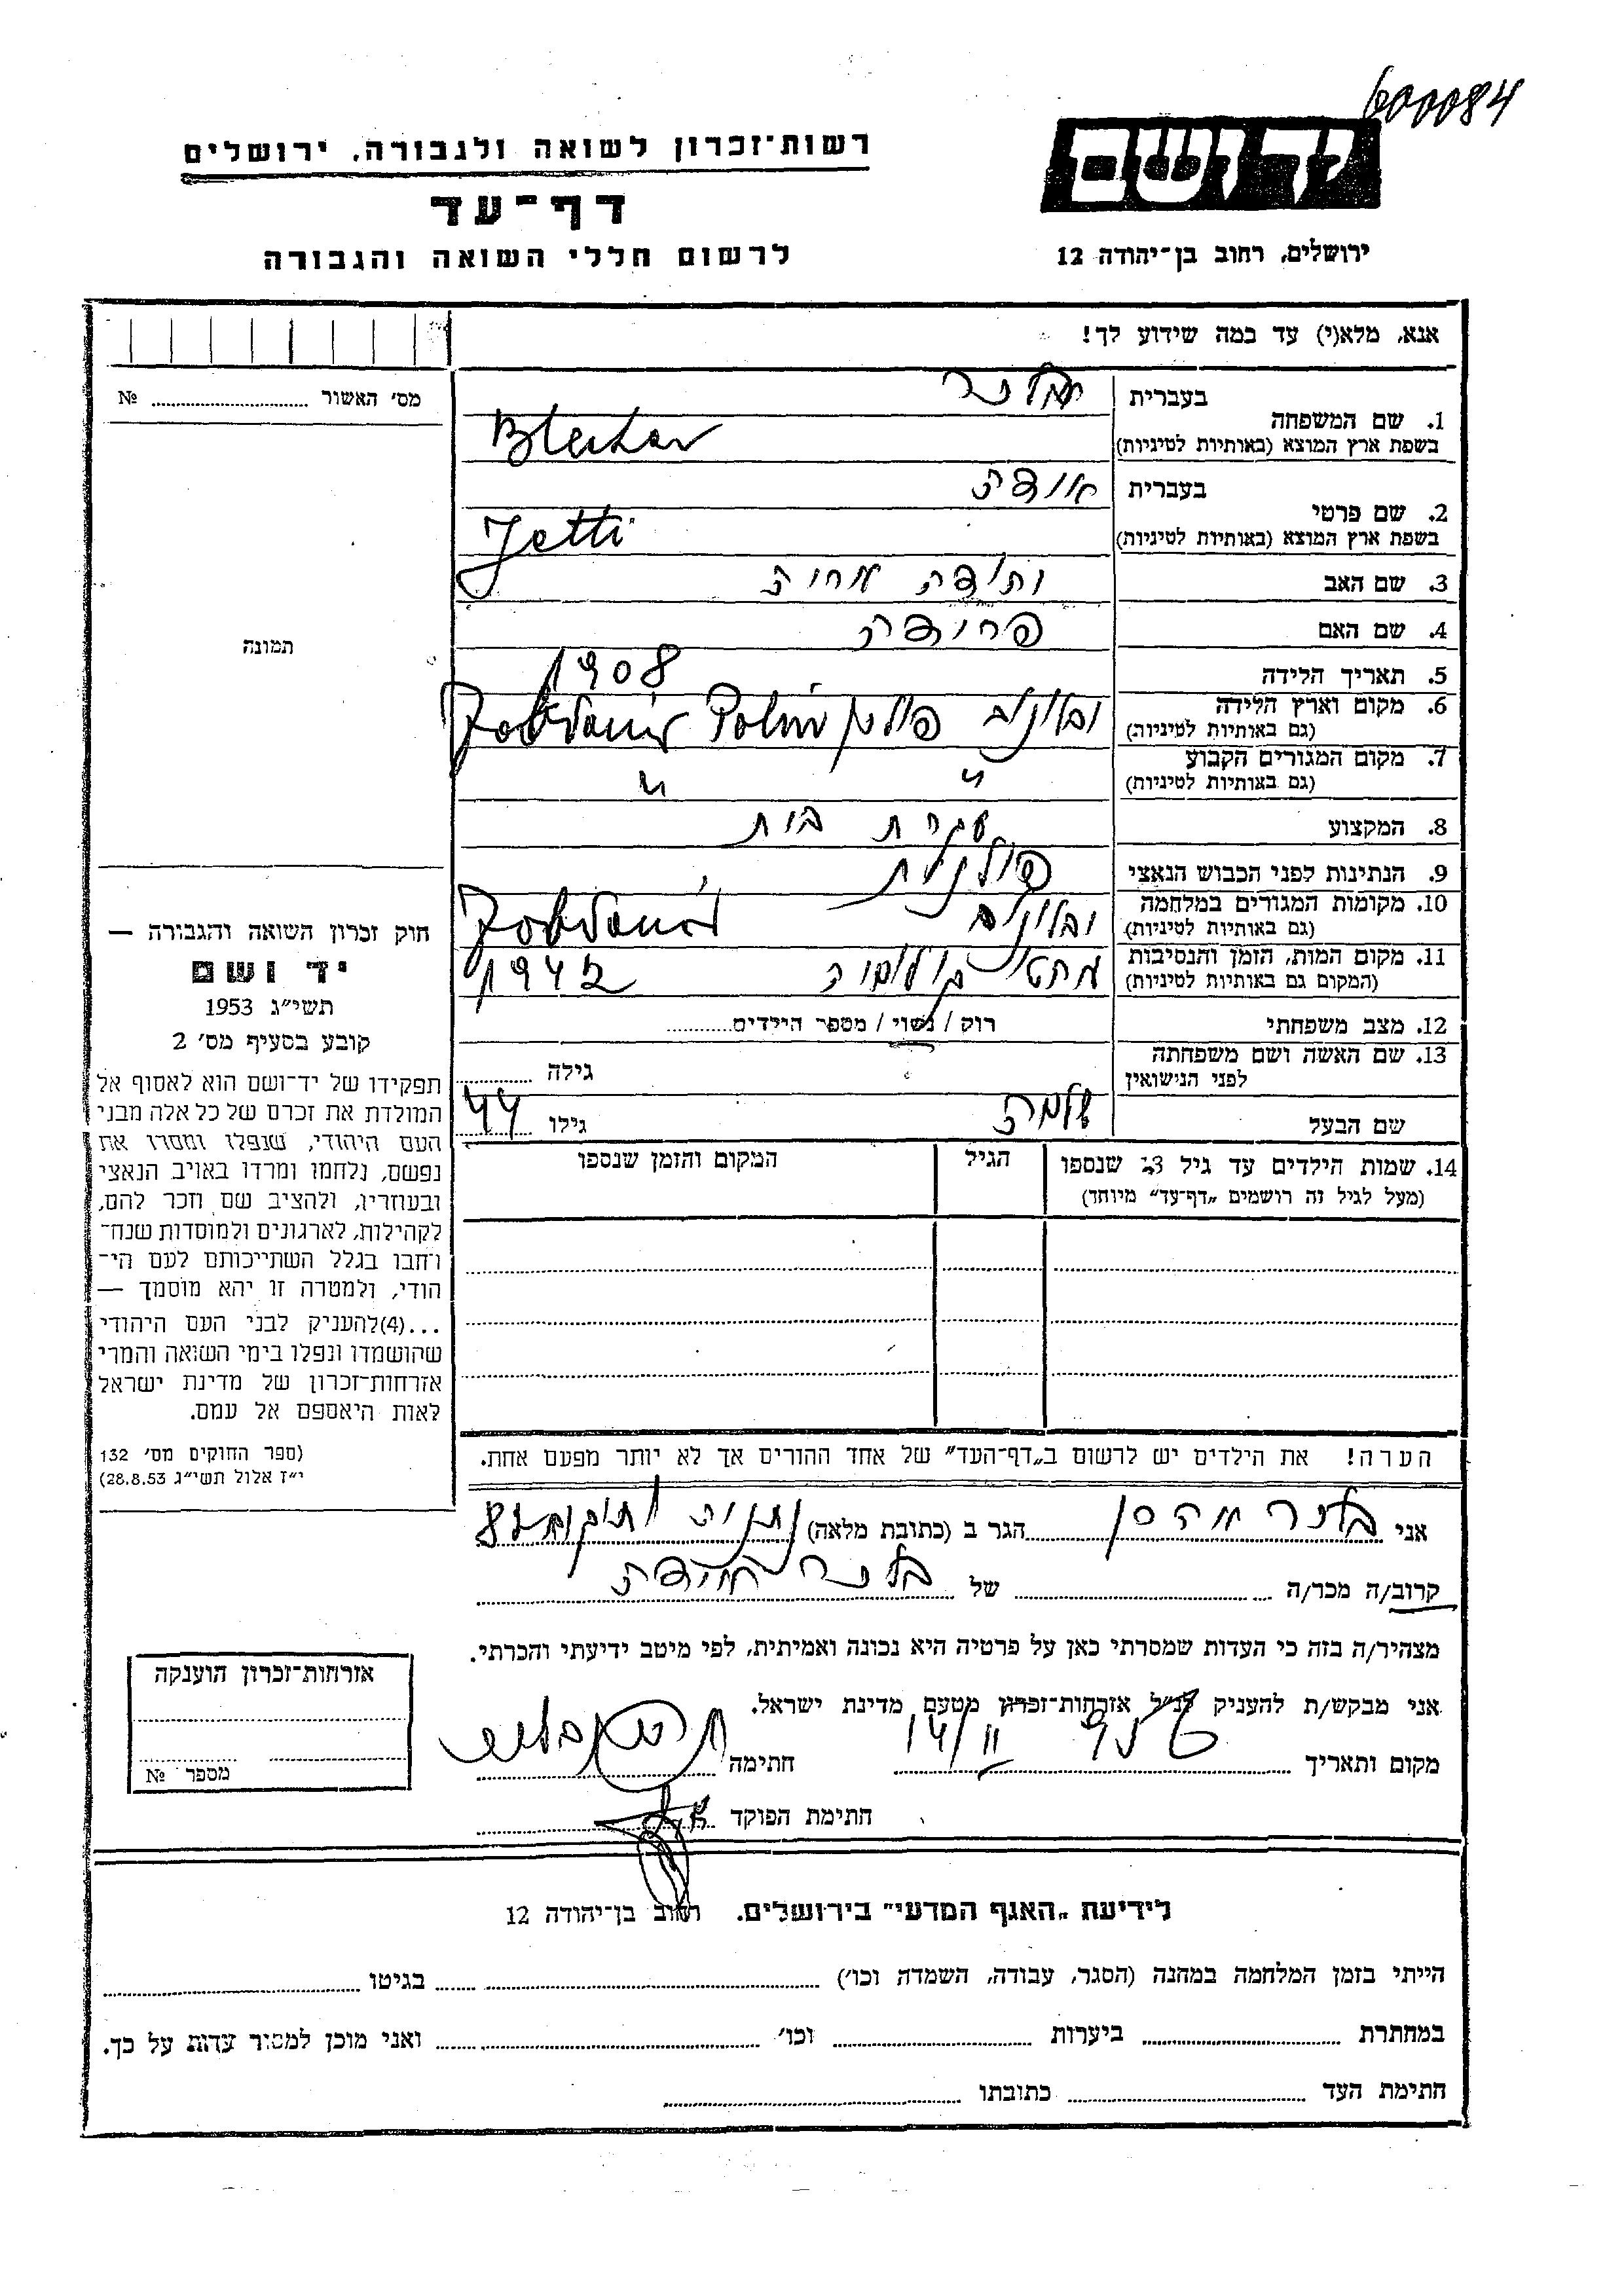 600084
יד ושם
רשות־זכרון לשואה ולגבורה, ירושלים
דף־עד
לרשום חללי השואה והגבורה
ירושלים, רחוב בן־יהודה 12
אנא, מלא(י) עד כמה שידוע לך!
מס' האשור № 
תמונה
1. שם המשפחה
בעברית
בשפת ארץ המוצא (באותיות לטיניות)
2. שם פרטי
בעברית
בשפת ארץ המוצא (באותיות לטיניות) Jetti
3. שם האב
4. שם האם פרידה
5. תאריך הלידה 1908
6. מקום וארץ הלידה
(גם באותיות לטיניות)
7. מקום המגורים הקבוע " "
(גם באותיות לטיניות)
8. המקצוע עקרת בית
9. הנתינות לפני הכבוש הנאצי פולנית
10. מקומות המגורים במלחמה
(גם באותיות לטיניות)
11. מקום המות, הזמן והנסיבות 1942
(המקום גם באותיות לטיניות)
12. מצב משפחתי רוק / נשוי / מספר הילדים
13. שם האשה ושם משפחתה גילה
לפני הנישואין
שם הבעל שלמה גילו 44
14. שמות הילדים עד גיל 13 שנספו הגיל המקום והזמן שנספו
(מעל לגיל זה רושמים „דף־עד" מיוחד)
הערה! את הילדים יש לרשום ב„דף־העד" של אחד ההורים אך לא יותר מפעם אחת.
חוק זכרון השואה והגבורה —
יד ושם
תשי"ג 1953
קובע בסעיף מס' 2
תפקידו של יד־ושם הוא לאסוף אל
המולדת את זכרם של כל אלה מבני
העם היהודי, שנפלו ומסרו את
נפשם, נלחמו ומרדו באויב הנאצי
ובעוזריו, ולהציב שם וזכר להם,
לקהילות, לארגונים ולמוסדות שנח־
רבו בגלל השתייכותם לעם הי־
הודי, ולמטרה זו יהא מוסמך —
...(4)להעניק לבני העם היהודי
שהושמדו ונפלו בימי השואה והמרי
אזרחות־זכרון של מדינת ישראל
לאות היאספם אל עמם.
(ספר החוקים מס' 132
י"ז אלול תשי"ג 28.8.53)
אני הגר ב (כתובת מלאה)
קרוב/ה מכר/ה של
מצהיר/ה בזה כי העדות שמסרתי כאן על פרטיה היא נכונה ואמיתית, לפי מיטב ידיעתי והכרתי.
אני מבקש/ת להעניק לנ"ל אזרחות־זכרון מטעם מדינת ישראל.
מקום ותאריך 14/II חתימה
חתימת הפוקד
אזרחות־זכרון הוענקה
מספר №
לידיעת „האגף המדעי" בירושלים. רחוב בן־יהודה 12
הייתי בזמן המלחמה במחנה (הסגר, עבודה, השמדה וכו') בגיטו
במחתרת ביערות וכו' ואני מוכן למסור עדות על כך.
חתימת העד כתובתו